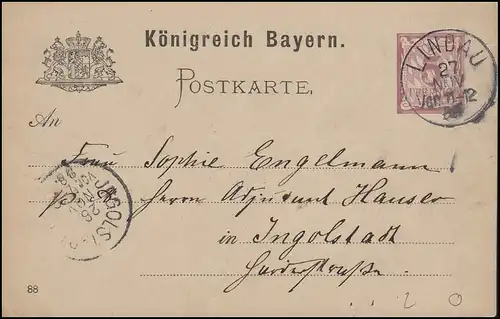 Königreich Bayern.
POSTKARTE.
LINDAU
27
NOV
VOR. 11-12
An
Frau Sophie Engelmann
Herrn Adjutant Hauser
in Ingolstadt
INGOLSTADT
28
NOV
88